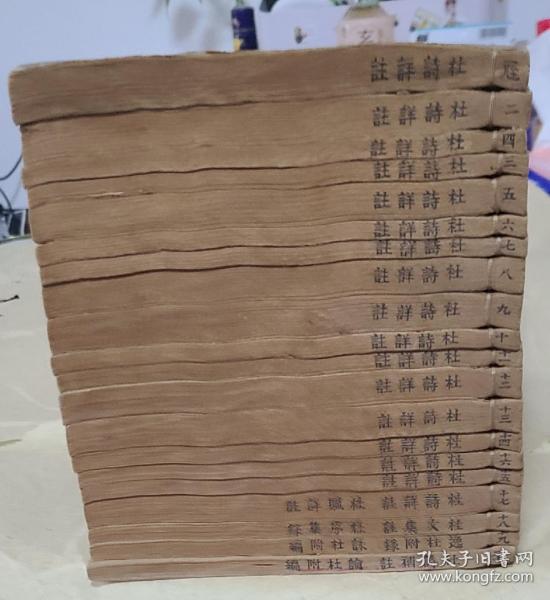 杜詩詳註
二 杜詩詳註
四 杜詩詳註
三 杜詩詳註
五 杜詩詳註
六 杜詩詳註
七 杜詩詳註
八 杜詩詳註
九 杜詩詳註
十 杜詩詳註
十一 杜詩詳註
十二 杜詩詳註
十三 杜詩詳註
十四 杜詩詳註
十六 杜詩詳註
十五 杜詩詳註
十七 杜詩詳註 杜賦詳註
十八 杜文集註 杜序集錄
十九 逸杜附錄 詠杜附編
補註 論杜附編
玄
孔夫子旧书网
www.kongfz.com